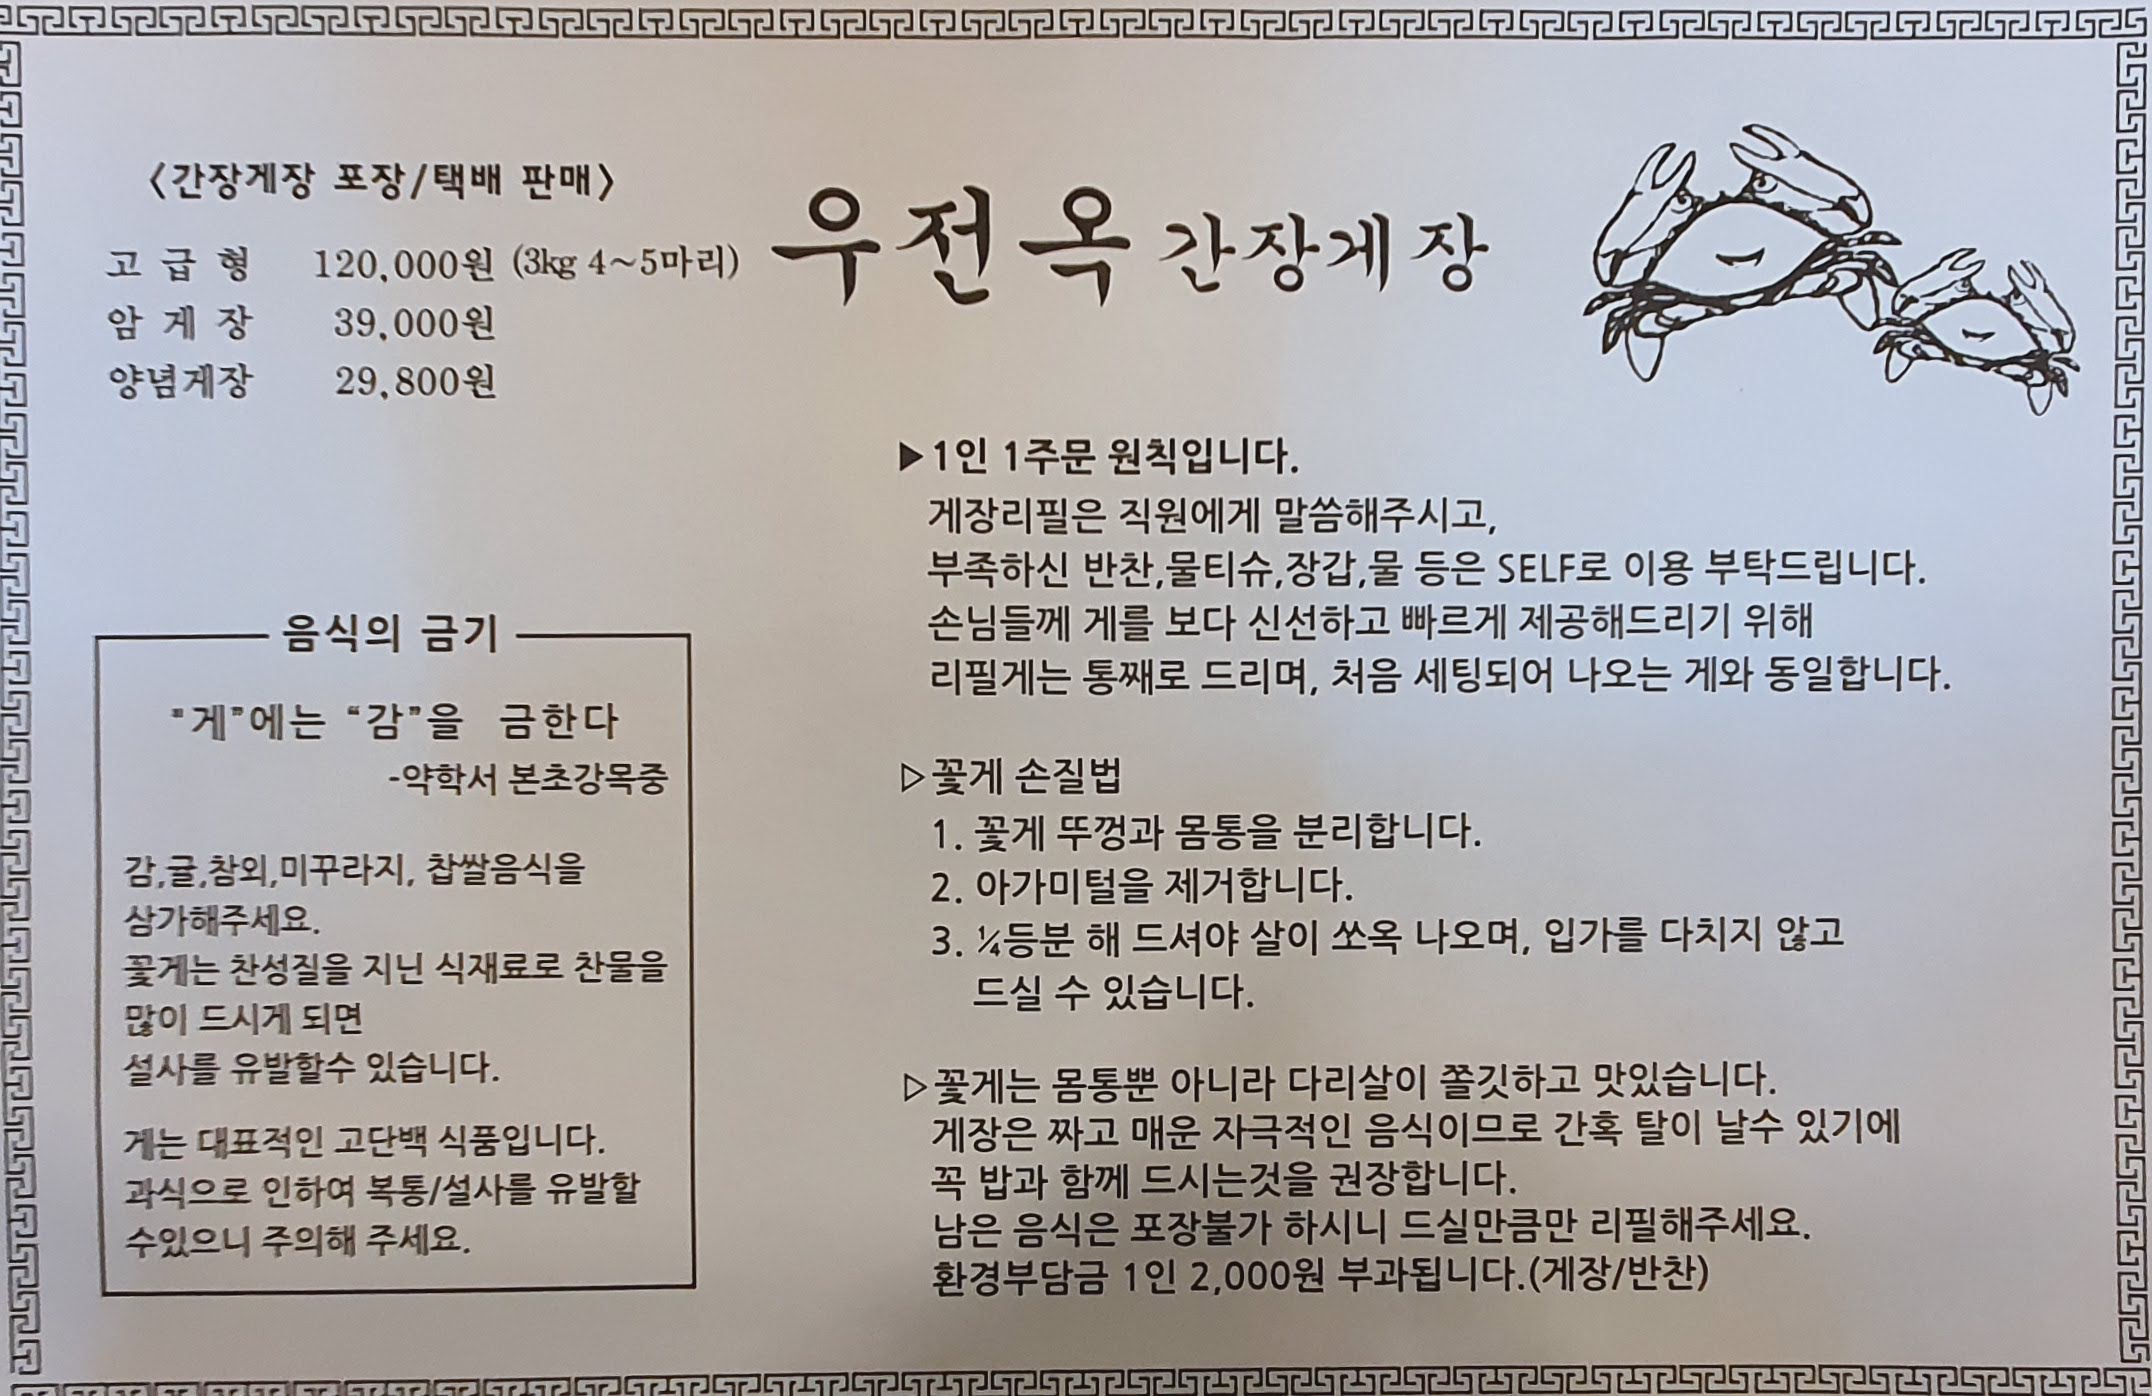 〈간장게장 포장/택배 판매〉
고 급 형 120,000원 (3kg 4~5마리)
암 게 장 39,000원
양념게장 29,800원
우전옥 간장게장
▶1인 1주문 원칙입니다.
게장리필은 직원에게 말씀해주시고,
부족하신 반찬,물티슈,장갑,물 등은 SELF로 이용 부탁드립니다.
손님들께 게를 보다 신선하고 빠르게 제공해드리기 위해
리필게는 통째로 드리며, 처음 세팅되어 나오는 게와 동일합니다.
▷꽃게 손질법
1. 꽃게 뚜껑과 몸통을 분리합니다.
2. 아가미털을 제거합니다.
3. ¼등분 해 드셔야 살이 쏘옥 나오며, 입가를 다치지 않고
드실 수 있습니다.
▷꽃게는 몸통뿐 아니라 다리살이 쫄깃하고 맛있습니다.
게장은 짜고 매운 자극적인 음식이므로 간혹 탈이 날수 있기에
꼭 밥과 함께 드시는것을 권장합니다.
남은 음식은 포장불가 하시니 드실만큼만 리필해주세요.
환경부담금 1인 2,000원 부과됩니다.(게장/반찬)
음식의 금기
"게"에는 "감"을 금한다
-약학서 본초강목중
감,귤,참외,미꾸라지, 찹쌀음식을
삼가해주세요.
꽃게는 찬성질을 지닌 식재료로 찬물을
많이 드시게 되면
설사를 유발할수 있습니다.
게는 대표적인 고단백 식품입니다.
과식으로 인하여 복통/설사를 유발할
수있으니 주의해 주세요.